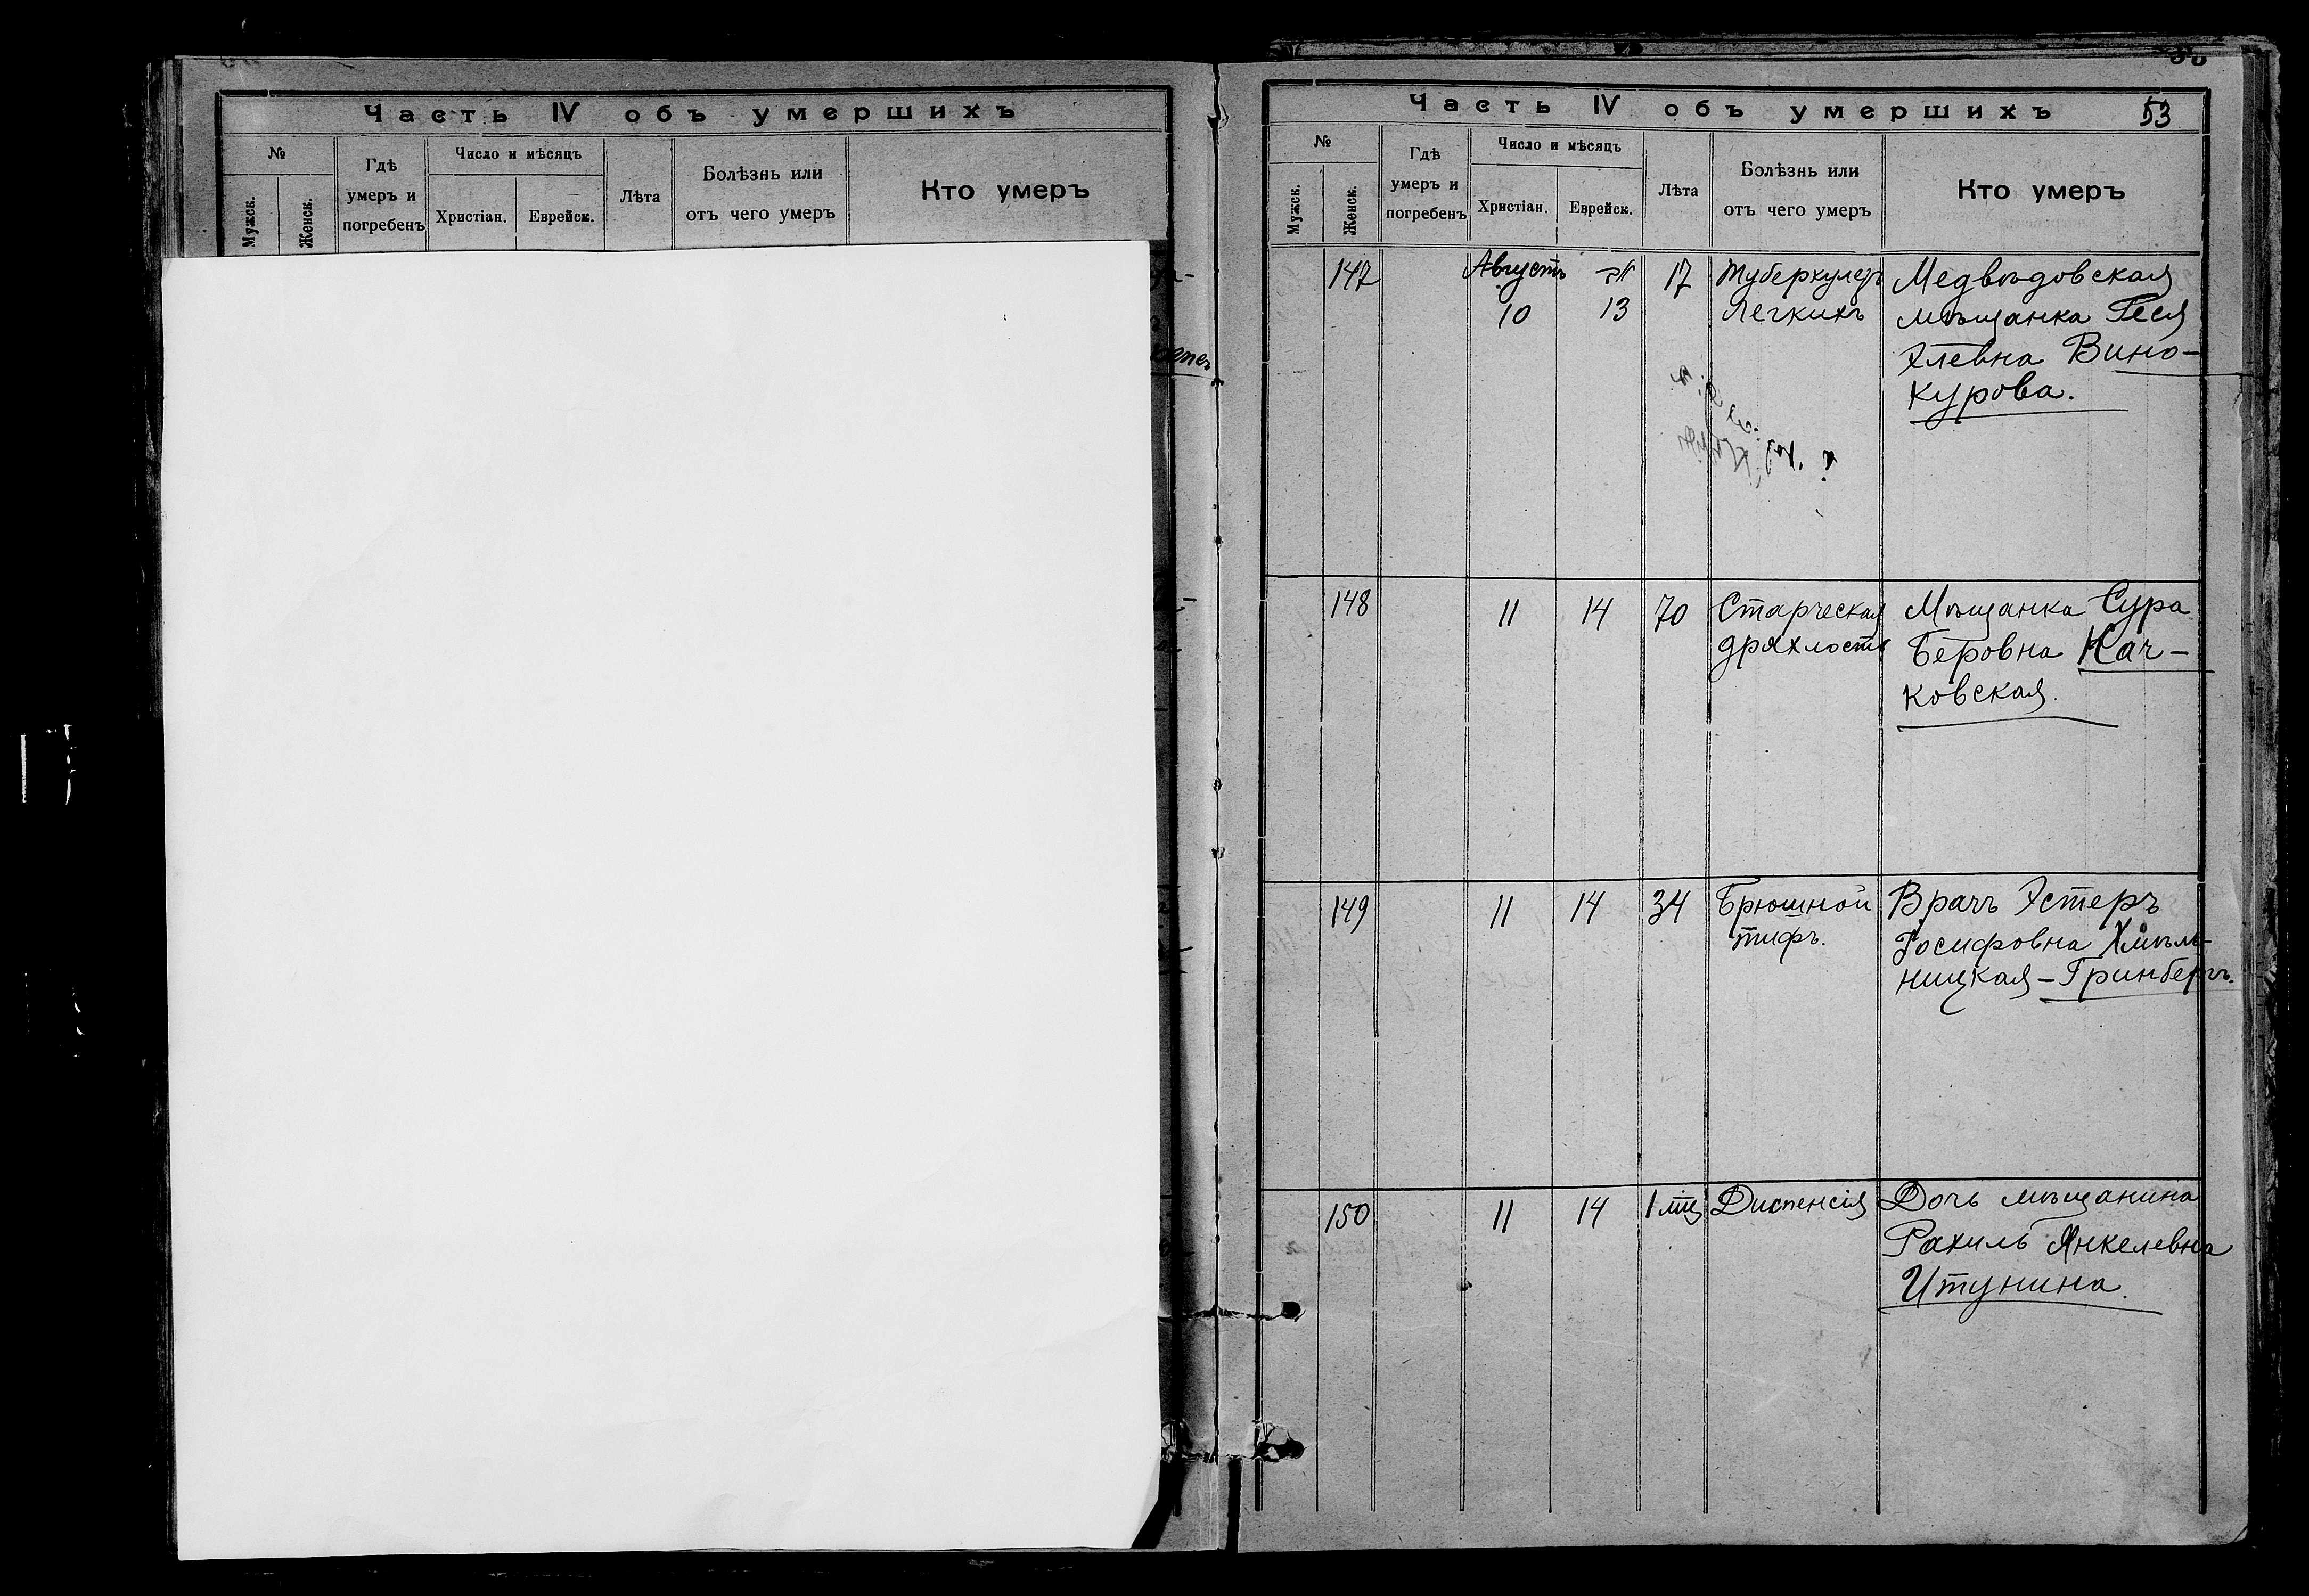 Часть IV объ умершихъ
№
Мужск.
Женск.
Гдѣ
умеръ и
погребенъ
Число и мѣсяцъ
Христіан.
Еврейск.
Лѣта
Болѣзнь или
отъ чего умеръ
Кто умеръ
Часть IV объ умершихъ
53
№
Мужск.
Женск.
Гдѣ
умеръ и
погребенъ
Число и мѣсяцъ
Христіан.
Еврейск.
Лѣта
Болѣзнь или
отъ чего умеръ
Кто умеръ
147
Августъ
10
13
17
Туберкулезъ
легкихъ
Медвѣдовская
мѣщанка Геся
Элевна Вино-
курова.
148
11
14
70
Старческая
дряхлость
Мѣщанка Сура
Беровна Кач-
ковская.
149
11
14
34
Брюшной
тифъ.
Врачъ Эстеръ
Іосифовна Хмѣль-
ницкая-Гринбергъ.
150
11
14
1 мц
Диспенсія
Дочь мѣщанина
Рахиль Янкелевна
Итунина.